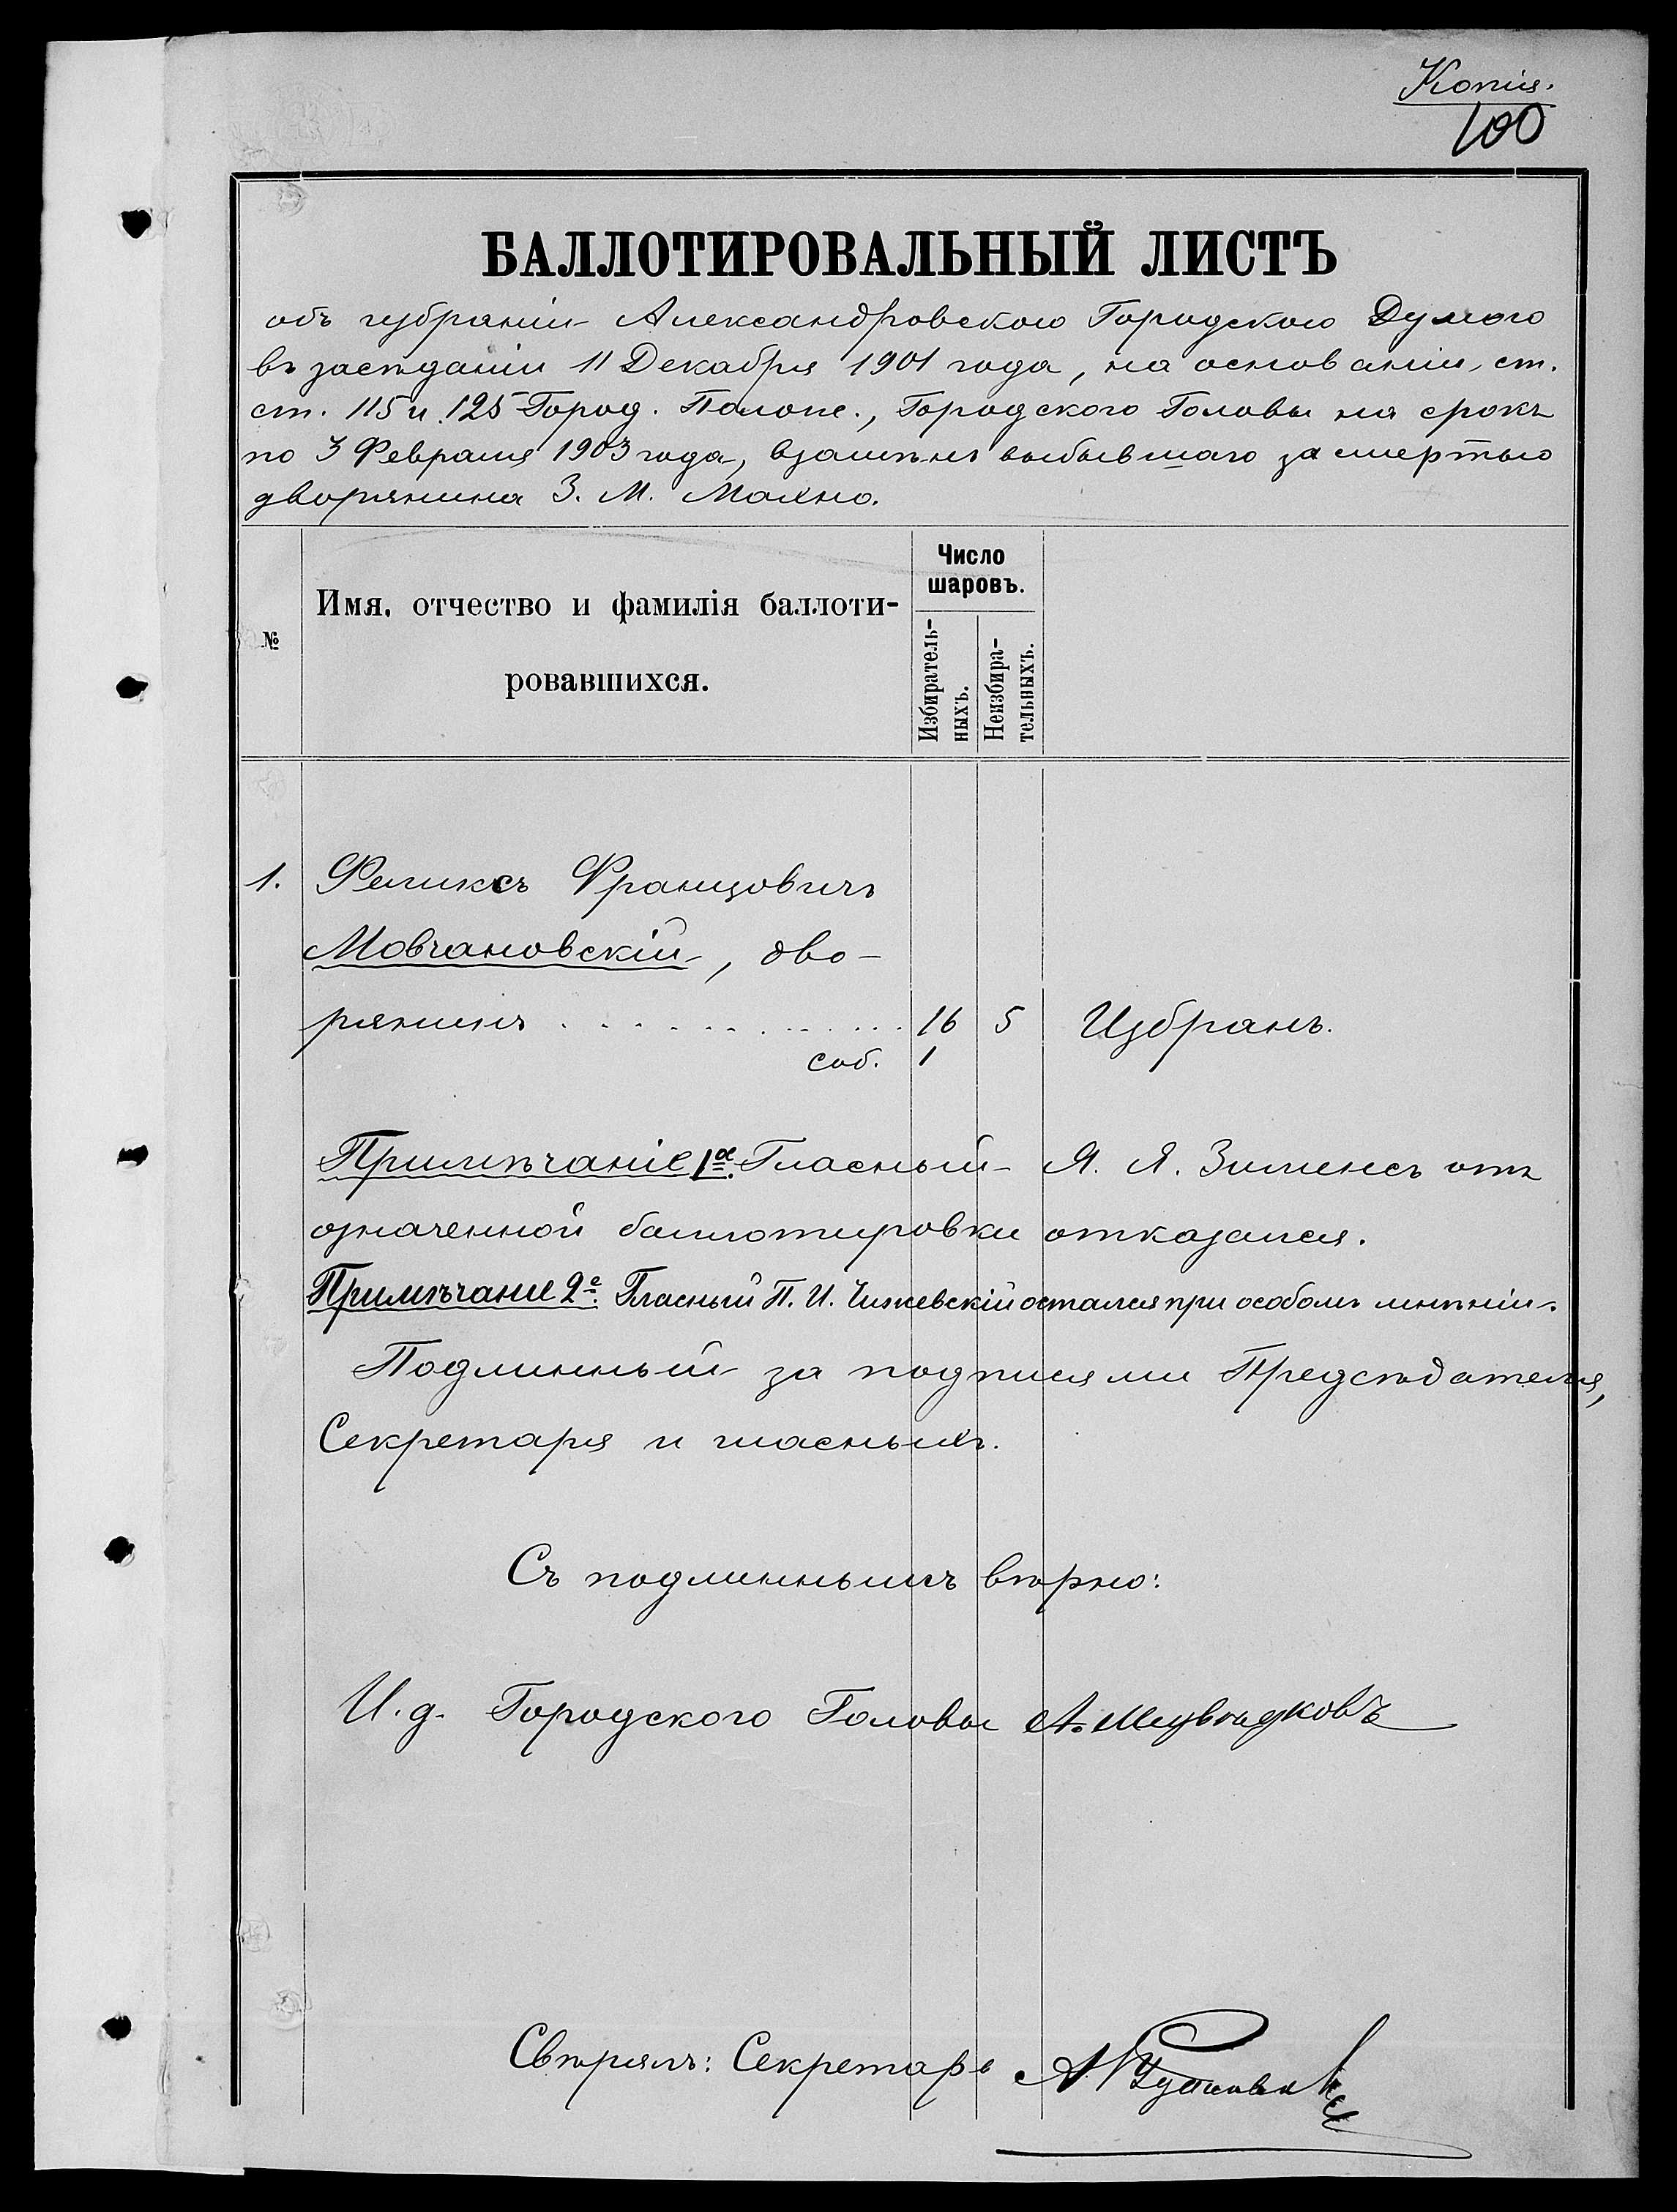 Копія.
100
БАЛЛОТИРОВАЛЬНЫЙ ЛИСТЪ
объ избраніи Александровскою Городскою Думою
въ засѣданіи 11 Декабря 1901 года, на основаніи ст.
ст. 115 и 125 Город. Полож., Городского Головы на срокъ
по 3 Февраля 1903 года, взамѣнъ выбывшаго за смертью
дворянина З. М. Махно.
№
Имя, отчество и фамилія баллоти-
ровавшихся.
Число
шаровъ.
Избиратель-
ныхъ.
Неизбира-
тельныхъ.
1. Феликсъ Францовичъ
Мовчановскій, дво-
рянинъ . . . . . . . . . . . . 16 5 Избранъ.
соб. 1
Примѣчаніе 1ое. Гласный Я. Я. Зименсъ отъ
означенной баллотировки отказался.
Примѣчание 2е. Гласный П. И. Чижевскій остался при особомъ мнѣніи.
Подлинный за подписями Предсѣдателя,
Секретаря и гласныхъ.
Съ подлиннымъ вѣрно:
И. д. Городского Головы А.
Свѣрялъ: Секретарь А.